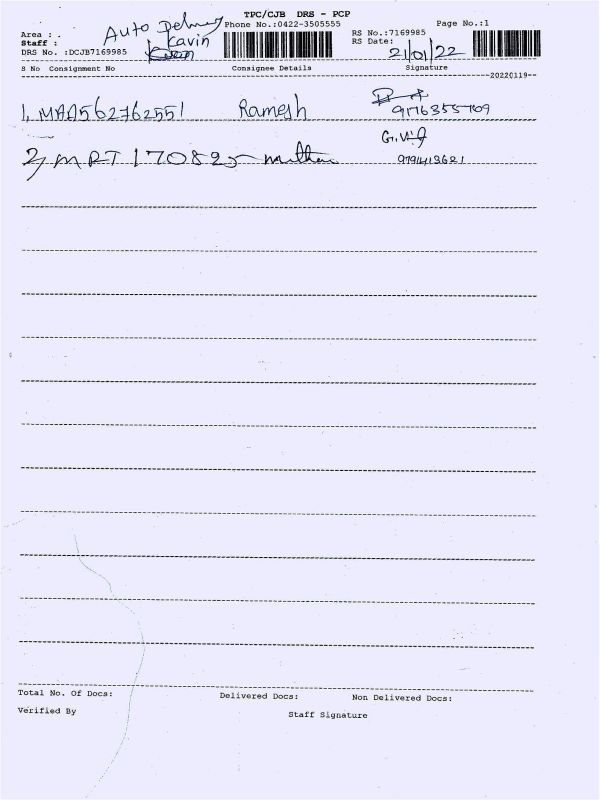 TPC/CJB DRS - PCP
Auto
Phone No.:0422-3505555
Page No.:1
Area : .
RS No.:7169985
Staff :
Kavin
RS Date:
21/01/22
DRS No. :DCJB7169985
S No Consignment No Consignee Details Signature
--20220119--
1, MAA562762551 Ramesh
2, MRT 170825
9791413621
Total No. Of Docs: Delivered Docs: Non Delivered Docs:
Verified By
Staff Signature